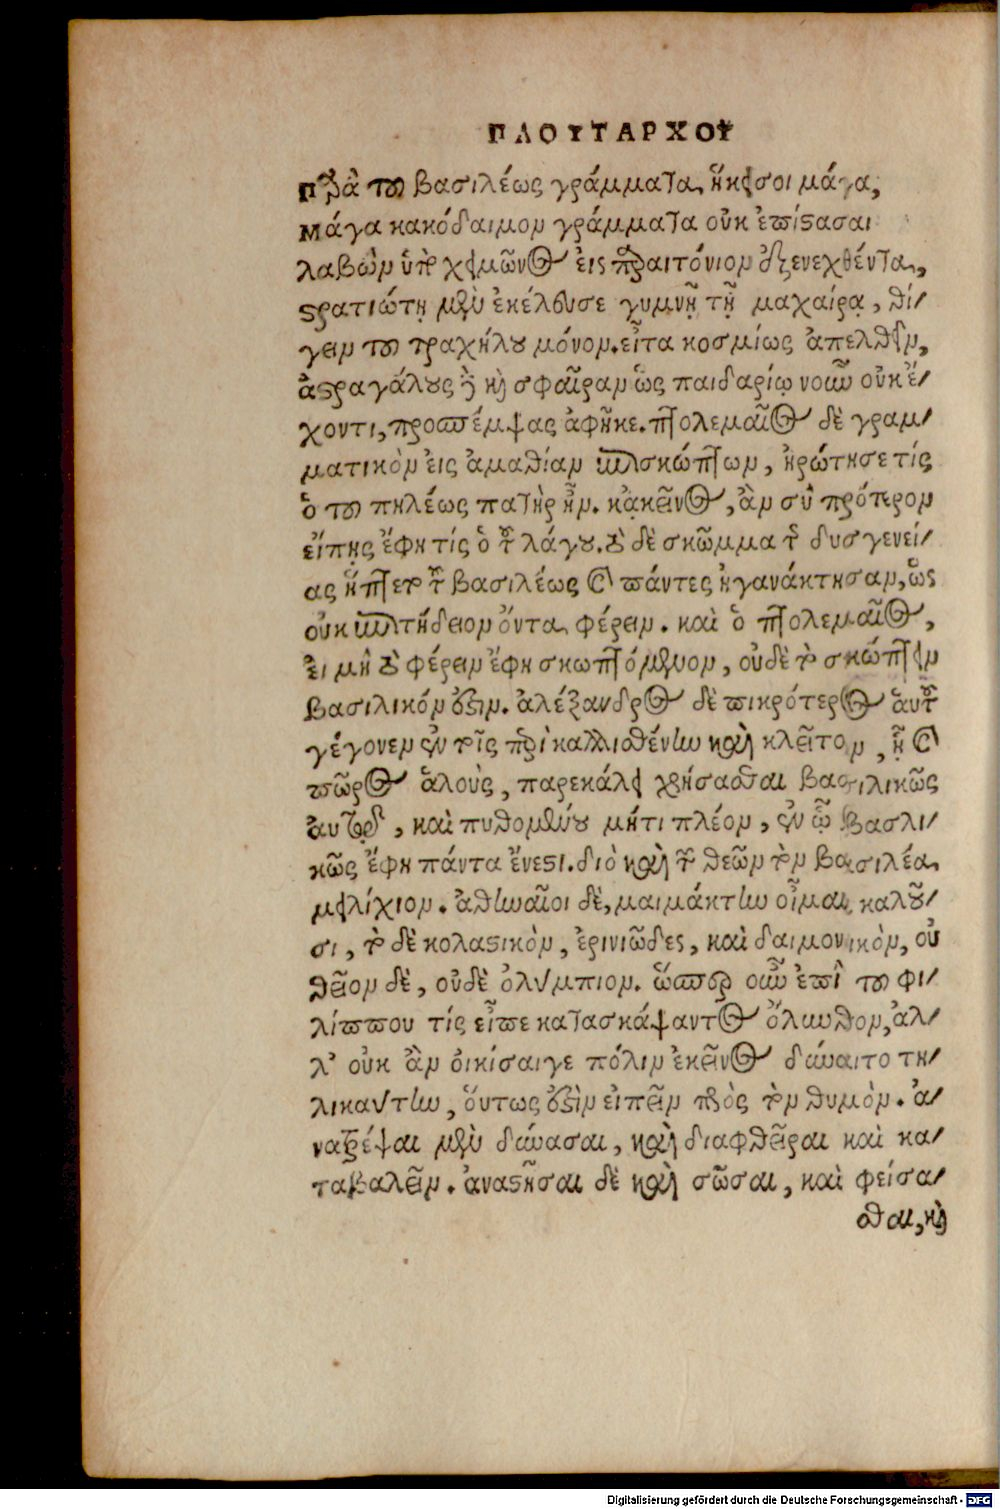 ΠΛΟΥΤΑΡΧΟΥ
Παρὰ τοῦ βασιλέως γράμματα, ἥκει σοι μάγα,
Μάγα κακόδαιμον γράμματα οὐκ ἐπίστασαι
λαβὼν ὑπὸ χειμῶνος εἰς παραιτόνιον ἐξενεχθέντα,
στρατιώτῃ μὲν ἐκέλευσε γυμνῇ τῇ μαχαίρᾳ, θί/
γειν τοῦ τραχήλου μόνον. εἶτα κοσμίως ἀπελθεῖν,
ἀστραγάλους δὲ καὶ σφαῖραν ὡς παιδαρίῳ νοῦν οὐκ ἔ/
χοντι, προσπέμψας ἀφῆκε. πτολεμαῖος δὲ γραμ/
ματικὸν εἰς ἀμαθίαν ἐπισκώπτων, ἠρώτησε τίς
ὁ τοῦ πηλέως πατὴρ ἦν. κᾀκεῖνος, ἂν σὺ πρότερον
εἴπῃς ἔφη τίς ὁ τοῦ λάγου. τὸ δὲ σκῶμμα τῆς δυσγενεί/
ας ἥπτετο τοῦ βασιλέως καὶ πάντες ἠγανάκτησαν, ὡς
οὐκ ἐπιτήδειον ὄντα φέρειν. καὶ ὁ πτολεμαῖος,
εἰ μὴ τὸ φέρειν ἔφη σκωπτόμενον, οὐδὲ τὸ σκώπτειν
βασιλικόν ἐστιν. ἀλέξανδρος δὲ πικρότερος αὑτοῦ
γέγονεν ἐν τοῖς περὶ καλλισθένην καὶ κλεῖτον, ᾗ καὶ
πῶρος ἁλοὺς, παρεκάλει χρήσασθαι βασιλικῶς
αὐτῷ, καὶ πυθομένου μήτι πλέον, ἐν τῷ βασλι/
κῶς ἔφη πάντα ἔνεστι. διὸ καὶ τῶν θεῶν τὸν βασιλέα
μειλίχιον. ἀθηναῖοι δὲ, μαιμάκτην οἶμαι καλοῦ/
σι, τὸ δὲ κολαστικὸν, ἐρινιῶδες, καὶ δαιμονικὸν, οὐ
θεῖον δὲ, οὐδὲ ὀλύμπιον. ὥσπερ οὖν ἐπὶ τοῦ φι/
λίππου τίς εἶπε κατασκάψαντος ὄλυνθον, ἀλ/
λ' οὐκ ἂν οἰκίσαιγε πόλιν ἐκεῖνος δύναιτο τη/
λικαύτην, οὕτως ἔστιν εἰπεῖν πρὸς τὸν θυμὸν. ἀ/
νατρέψαι μὲν δύνασαι, καὶ διαφθεῖραι καὶ κα/
ταβαλεῖν. ἀναστῆσαι δὲ καὶ σῶσαι, καὶ φείσα/
σθαι, καὶ
Digitalisierung gefördert durch die Deutsche Forschungsgemeinschaft - DFG